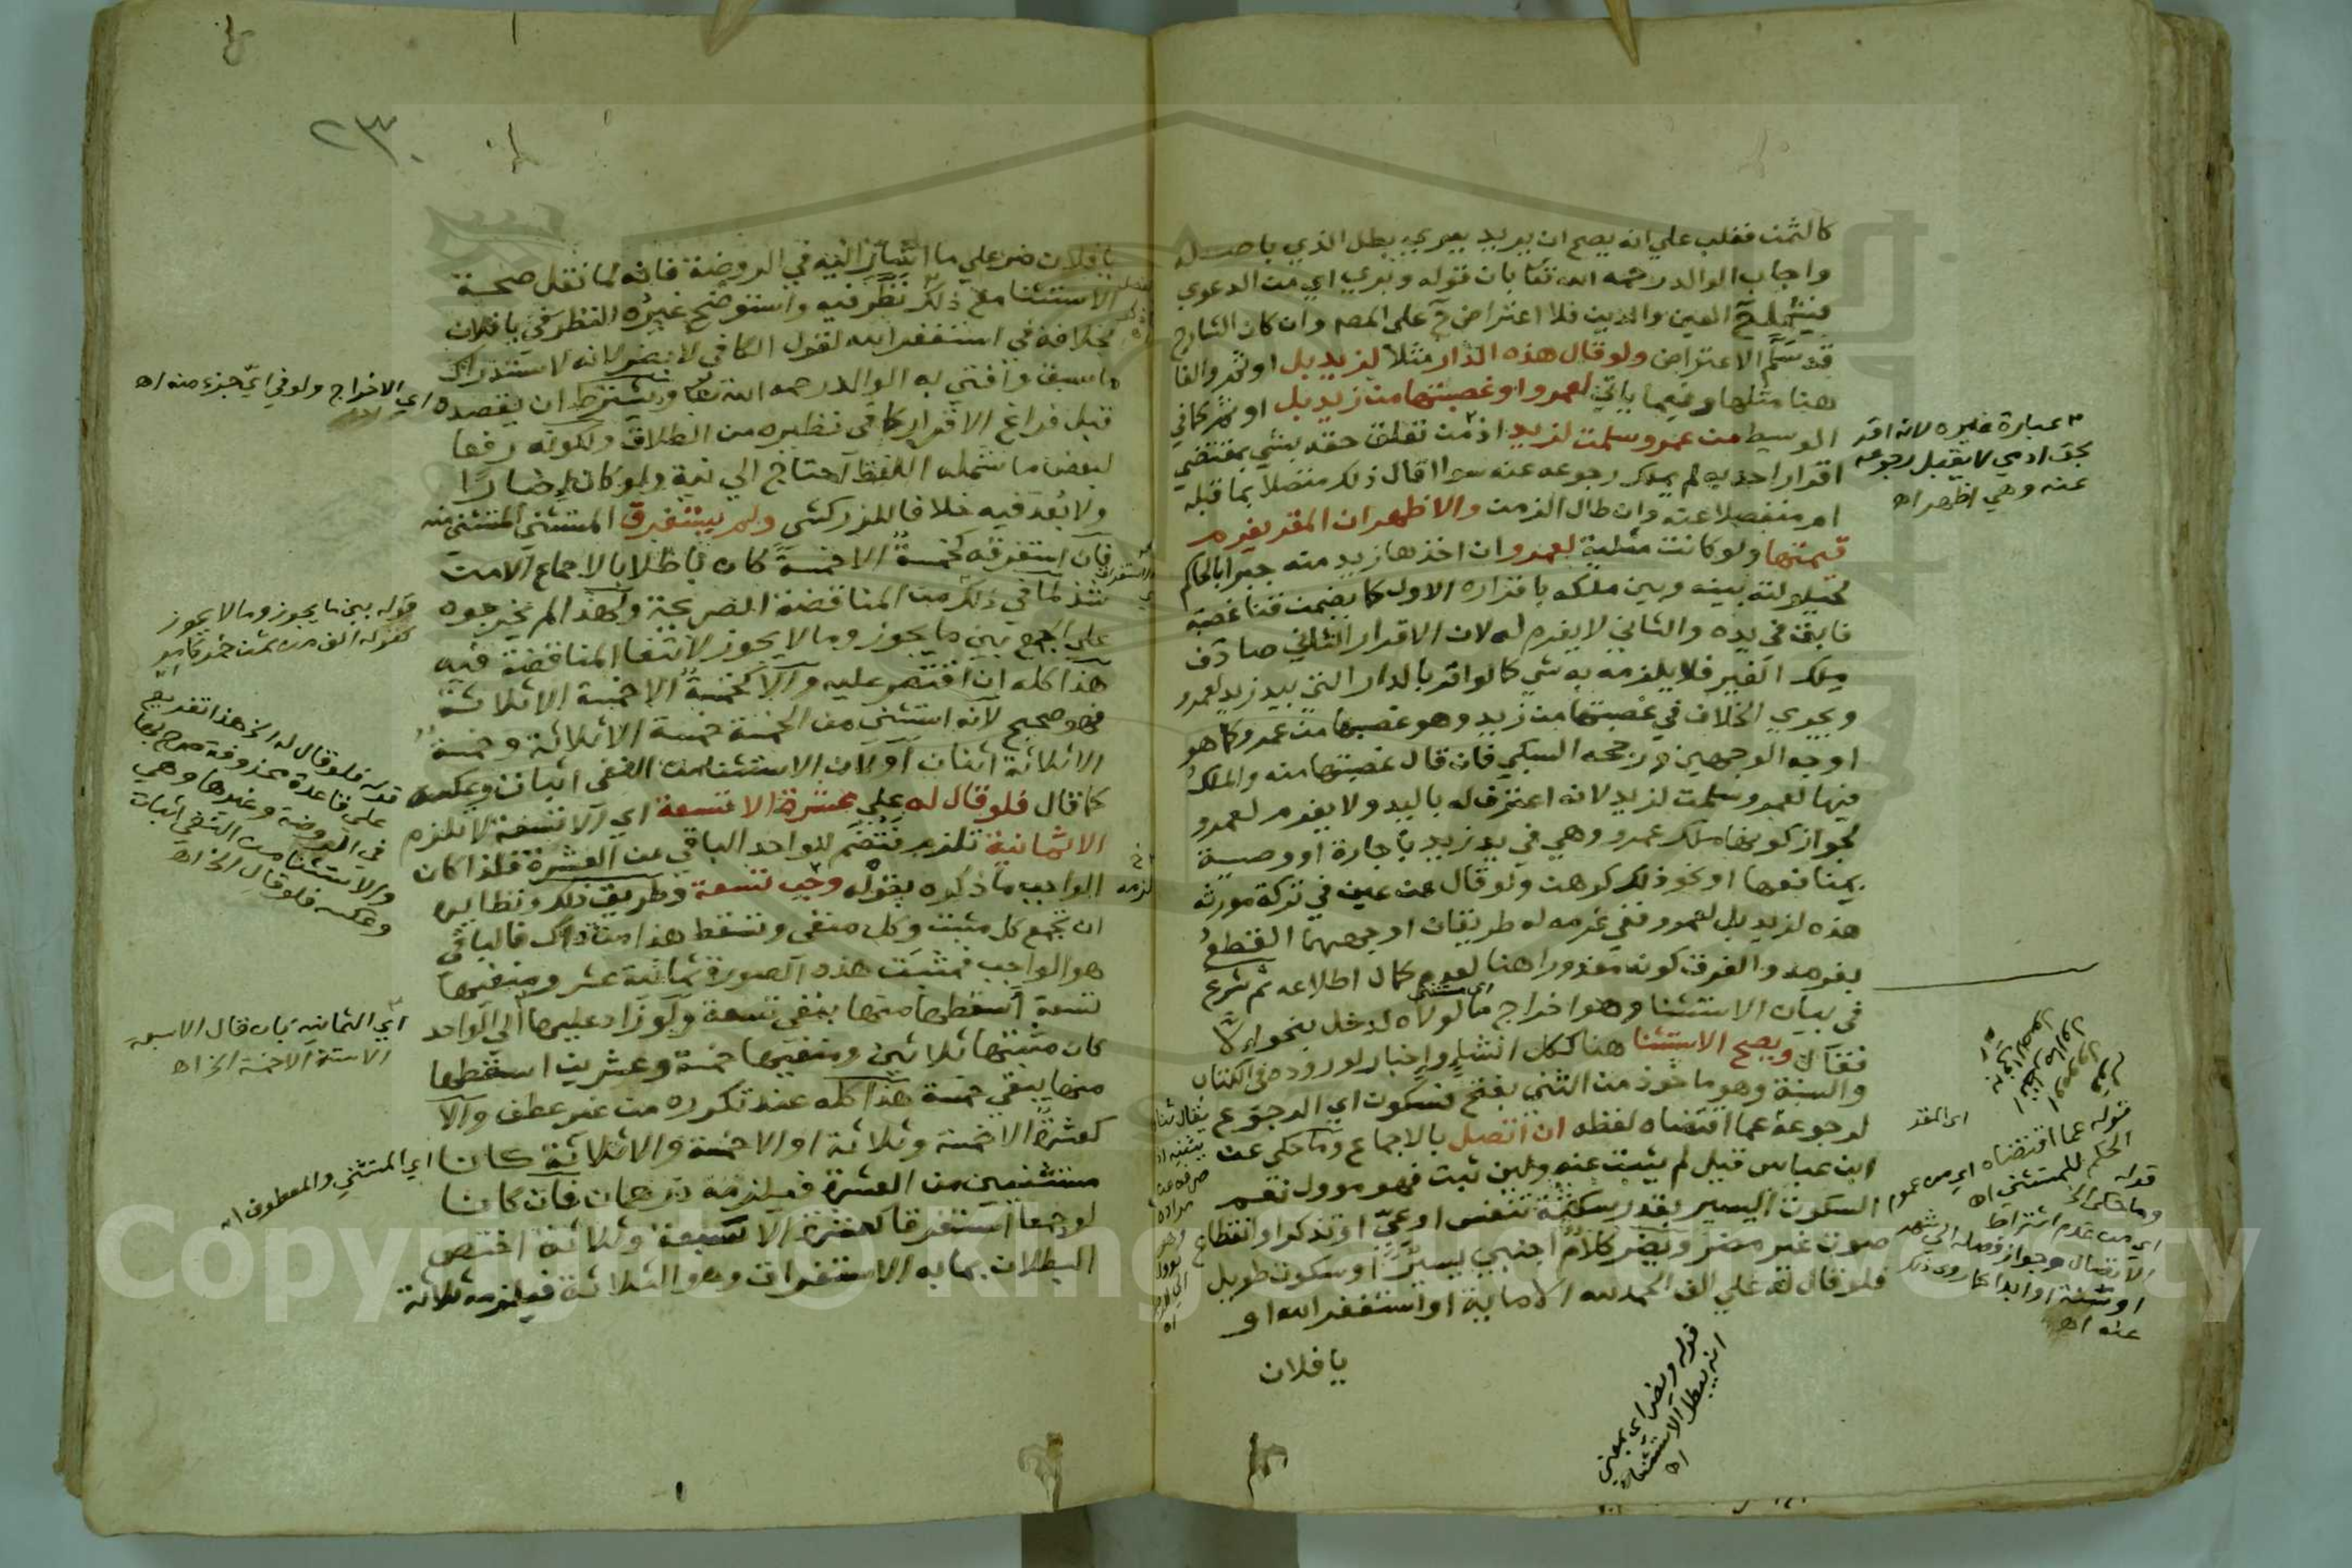 كالثمن فغلب علي انه يصح ان يريد بعدي بطل الذي باصله
واجاب الوالد رحمه الله تعا بان قوله وتعري اي من الدعوي
فيشمل ح العين والدين فلا اعتراض ح على المصـ وان كان الشارح
قد سلم الاعتراض ولو قال هذه الدار مثلا لزيد بل او ثم والفا
هنا مثلها وفيما ياتي لعمرو او غصبتها من زيد بل او ثم كما في
الوسيط من عمرو سلمت لزيد اذ من تعلق حقه بشي بمقتضي
اقرار احد به لم يملك رجوعه عنه سوا اقال ذلك متصلا بما قبله
ام منفصلا عنه وان طال الزمن والاظهر ان المقر يغرم
قيمتها ولو كانت مثلية لعمرو ان اخذها زيد منه جبرا بالحاكم
لحيلولته بينه وبين ملكه باقراره الاول كما يضمن قنا غصبه
فابق في يده والثاني لا يغرم له لان الاقرار الثاني صادف
ملك الغير فلا يلزمه به شي كما لو اقر بالدار التي بيد زيد لعمرو
ويجري الخلاف في غصبتها من زيد وهو غصبها من عمرو كما هو
اوجه الوجهين ورجحه السبكي فان قال غصبتها منه والملك
فيها لعمرو سلمت لزيد لانه اعترف له باليد ولا يغرم لعمرو
لجواز كونها ملك عمرو وهي في يد زيد باجارة او وصية
بمنافعها او نحو ذلك كرهن ولو قال عن عين في تركة مورثه
هذه لزيد بل لعمرو ففي غرمه له طريقان اوجههما القطع
بغرمه والفرق كونه معذورا هنا لعدم كمال اطلاعه ثم شرع
في بيان الاستثنا وهو اخراج ما لولاه لدخل بنحو الا
فقال ويصح الاستثنا هنا ككل انشاء واخبار لوروده في الكتاب
والسنة وهو ماخوذ من الثني بفتح فسكون اي الرجوع
لرجوعه عما اقتضاه لفظه ان اتصل بالاجماع وما حكي عن
ابن عباس قيل لم يثبت عنه ولين ثبت فهو موول نعم
السكوت اليسير بقدر سكتة تنفس او عي او تذكر او انقطاع
صوت غير مضر ويضر كلام اجنبي يسير او سكوت طويل
فلو قال له علي الف الحمد لله الا ماية او استغفر الله او
يا فلان
٣ عبارة غيره لانه اقر
بحق ادمي لا يقبل رجوعه
عنه وهي اظهر اه
اي المقر
قوله عما اقتضاه اي من عموم
الحكم للمستثني اه
قوله
وما حكي الخ
اي من عدم اشتراط
الاتصال وجواز فصله الي شهر
او سنة او ابدا كما روي ذلك
عنه اه
قوله ويضر اي بمعني
انه يبطل الاستثناء
اه
٢٣٠
يا فلان ضر علي ما اشار اليه في الروضة فانه لما نقل صحة
الاستثنا مع ذلك نظر فيه واستوضح غيره النظر في يا فلان
بخلافه في استغفر الله لقول الكافي لا يضر لانه لاستدراك
ما سبق وافتي به الوالد رحمه الله تعا ويشترط ان يقصده
قبل فراغ الاقرار كما في نظيره من الطلاق ولكونه رفعا
لبعض ما شمله اللفظ احتاج الي نية ولو كان اخبارا
ولا بعد فيه خلافا للزركشي ولم يستغرق المستثني المستثني منه
فان استغرقه كخمسة الا خمسة كان باطلا بالاجماع الا من
شذ لما في ذلك من المناقضة الصريحة ولهذا لم يخرجوه
علي الجمع بين ما يجوز وما لا يجوز لانتفا المناقضة فيه
هذا كله ان اقتصر عليه والا كخمسة الا خمسة الا ثلاثة
فهو صحيح لانه استثني من الخمسة خمسة الا ثلاثة وخمسة
الا ثلاثة اثنان او لان الاستثنا من النفي اثبات وعكسه
كما قال فلو قال له علي عشرة الا تسعة اي الا تسعة لا تلزم
الا ثمانية تلزم فتضم للواحد الباقي من العشرة فلذا كان
الواجب ما ذكره بقوله وجب تسعة وطريق ذلك ونظايره
ان تجمع كل مثبت وكل منفي وتسقط هذا من ذاك فالباقي
هو الواجب فمثبت هذه الصورة ثمانية عشر ومنفيها
تسعة اسقطها منها يبقي تسعة ولو زاد عليها الي الواحد
كان مثبتها ثلاثين ومنفيها خمسة وعشرين اسقطها
منها يبقي خمسة هذا كله عند تكرره من غير عطف والا
كعشرة الا خمسة وثلاثة او الا خمسة والا ثلاثة كانا
مستثنيين من العشرة فيلزمه درهمان فان كانا
لو جمعا استغرقا كعشرة الا سبعة وثلاثة اختص
البطلان بما به الاستغراق وهو الثلاثة فيلزمه ثلاثة
اي الاخراج ولو في اي جزء منه اه
قوله بين ما يجوز وما لا يجوز
كقوله الف من ثمن خمر
قوله فلو قال له الخ هذا تفريع
علي قاعدة محذوفة صرح بها
في الروضة وغيرها وهي
والاستثنا من النفي اثبات
وعكسه فلو قال الخ اه
اي الثمانية بان قال الا سبعة
الا ستة الا خمسة الخ اه
اي المستثني والمعطوف اه
Copyright © King Saud University